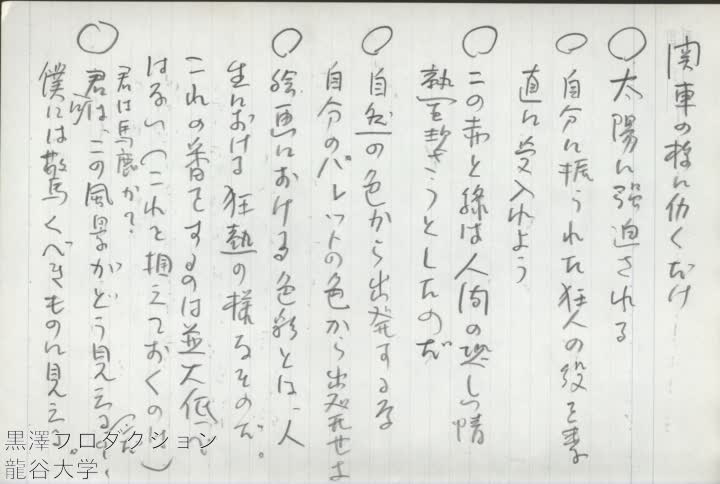 関車の様に仂くだけ
○太陽に強迫される
○自分に振られた狂人の役を素
直に受入れよう
○この赤と緑は人间の恐しい情
熱を赦さうとしたのだ
○自然の色から出発するな
自分のパレットの色から出発せよ
○絵画における色彩とは、人
生における狂熱の様なものだ。
これの番をするのは並大低で
はない(これを捆えておくのは)
君は馬鹿か?
○君には、この風景がどう見えるのだ、
僕には驚くべきものに見える。
黒澤プロダクション
龍谷大学